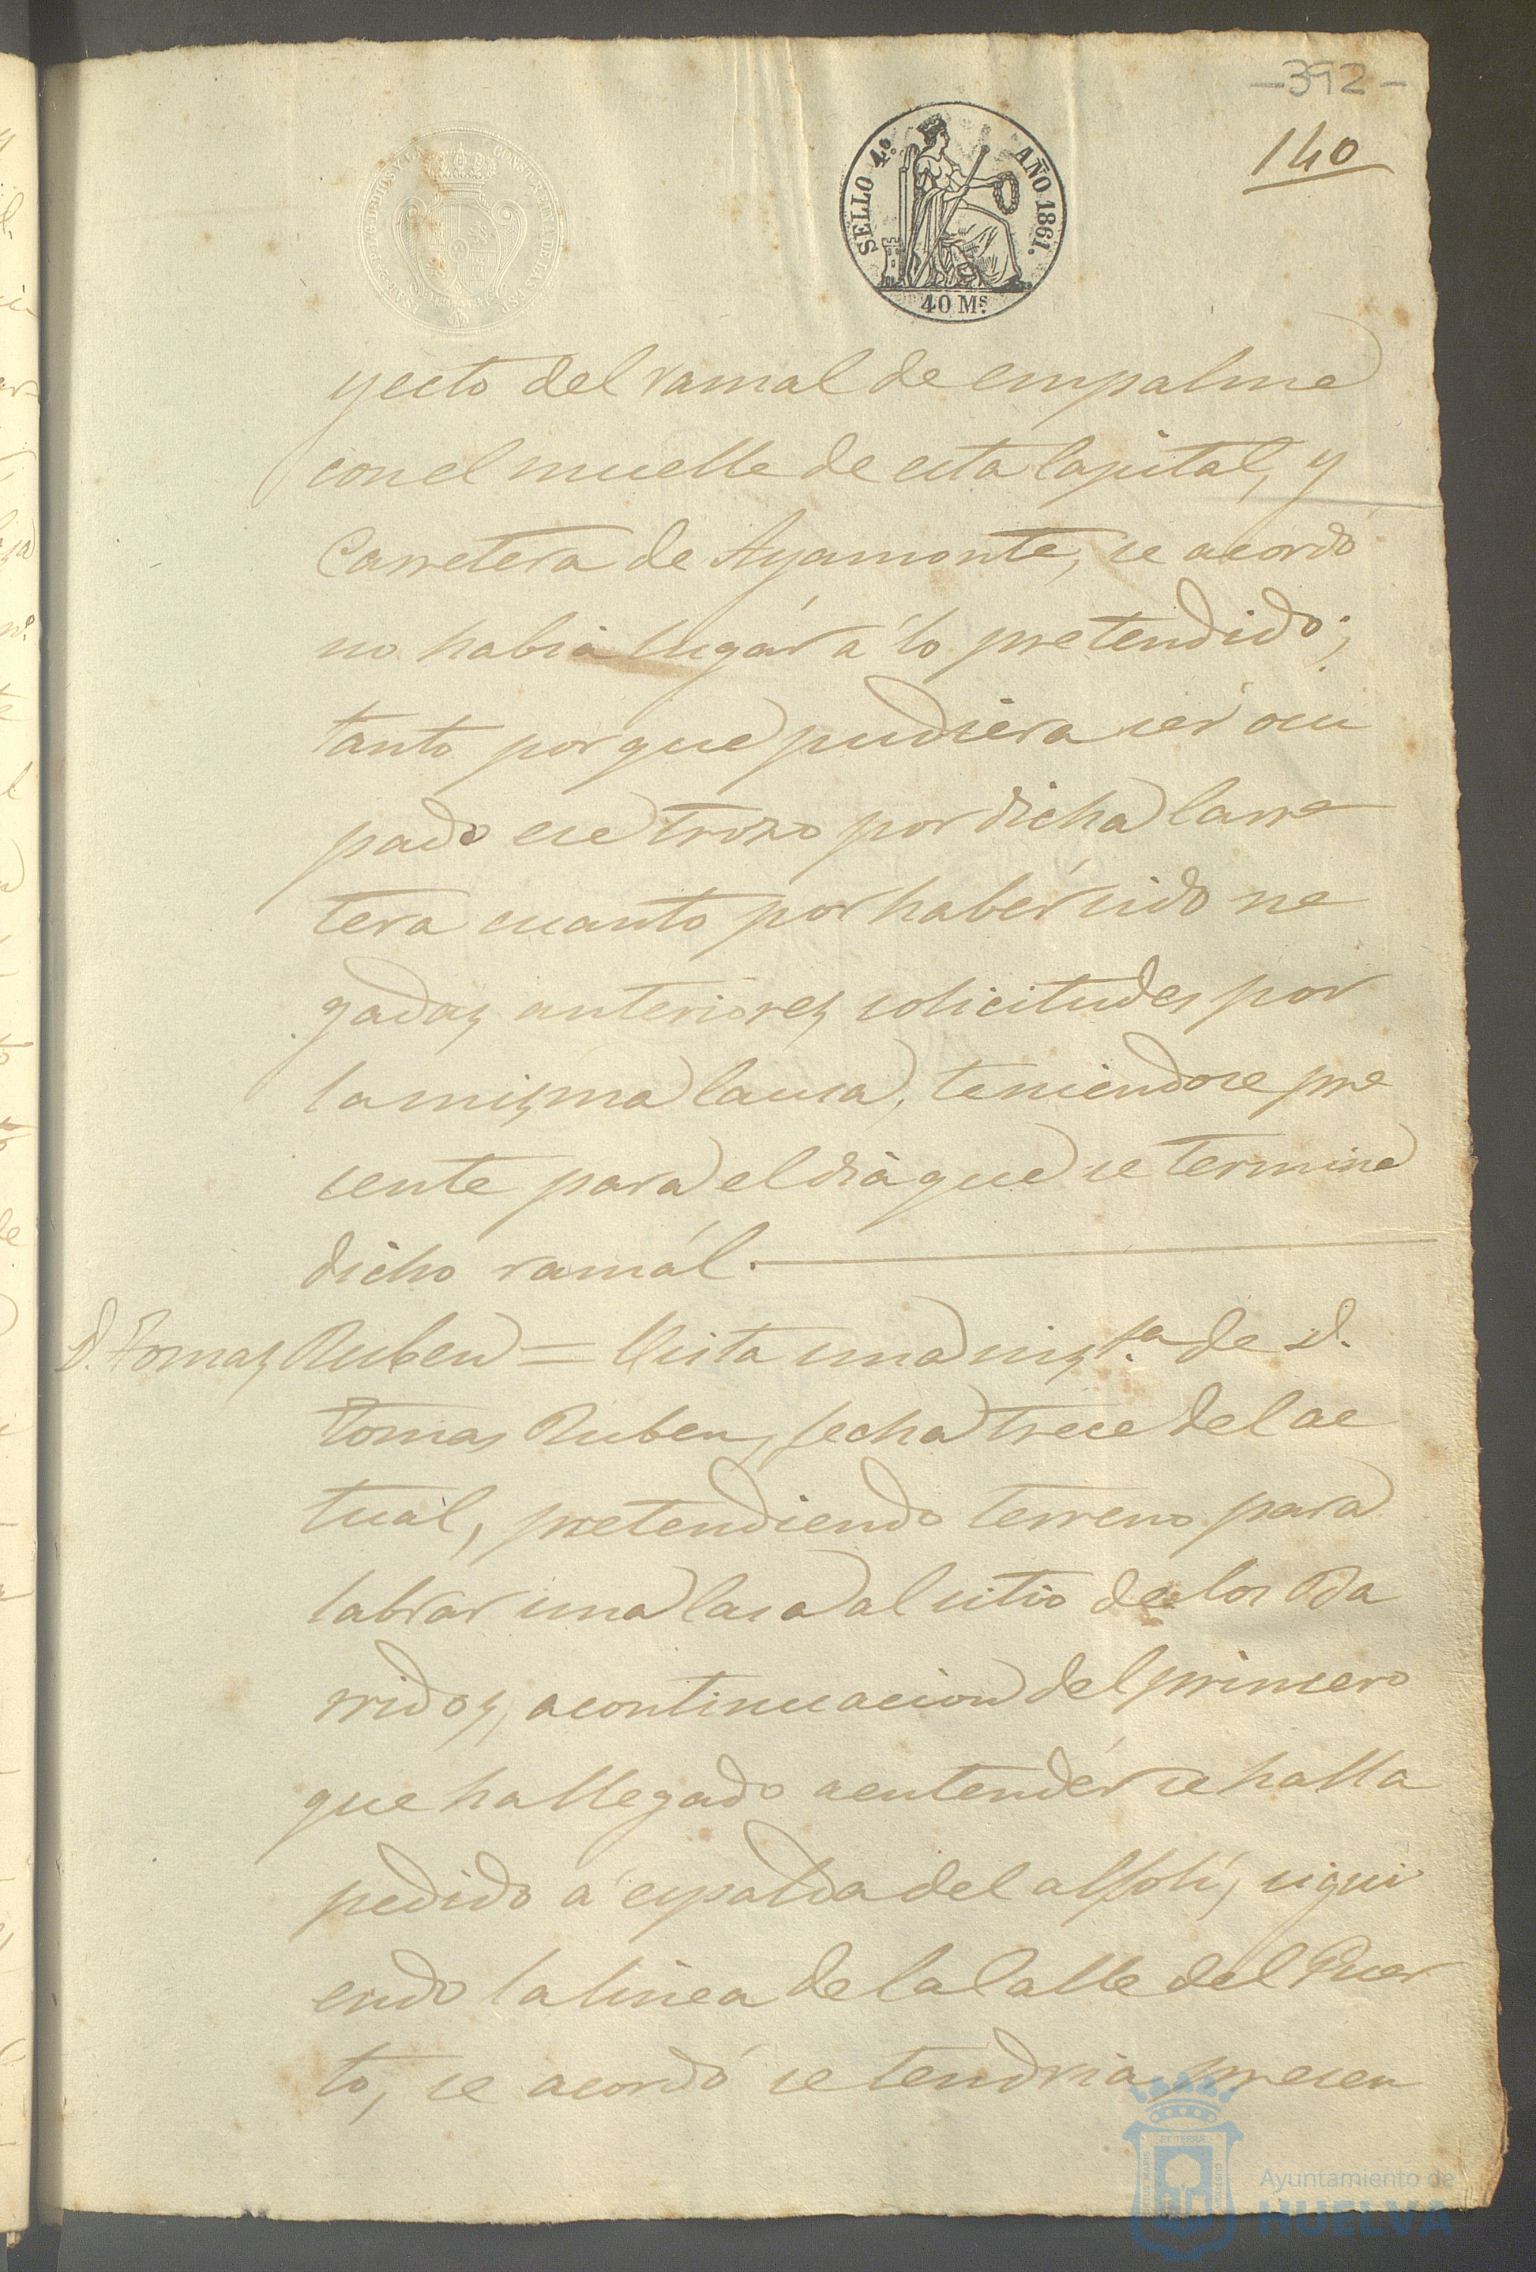 -392-
140
SELLO 4º AÑO 1861.
40 Ms.
yecto del ramal de empalme
con el muelle de esta Capital, y
Carretera de Ayamonte, se acordó
no habia lugár á lo pretendido;
tanto porque pudiera ser ocu
pado ese trozo por dicha Carre
tera cuanto por habér sido ne
gadas anteriores solicitudes por
la misma Causa, teniendose pre
sente para el dia que se termine
dicho ramál.
D. Tomas Ruben = Vista una insta. de D.
Tomas Ruben, fecha trece del ac
tual, pretendiendo terreno para
labrar una Casa al sitio de los Ba
rridos, a continuacion del primero
que ha llegado a entendér se halla
pedido á espalda del alfolí, sigui
endo la linea de la Calle del Puer
to, se acordó se tendria presen
Ayuntamiento de
HUELVA